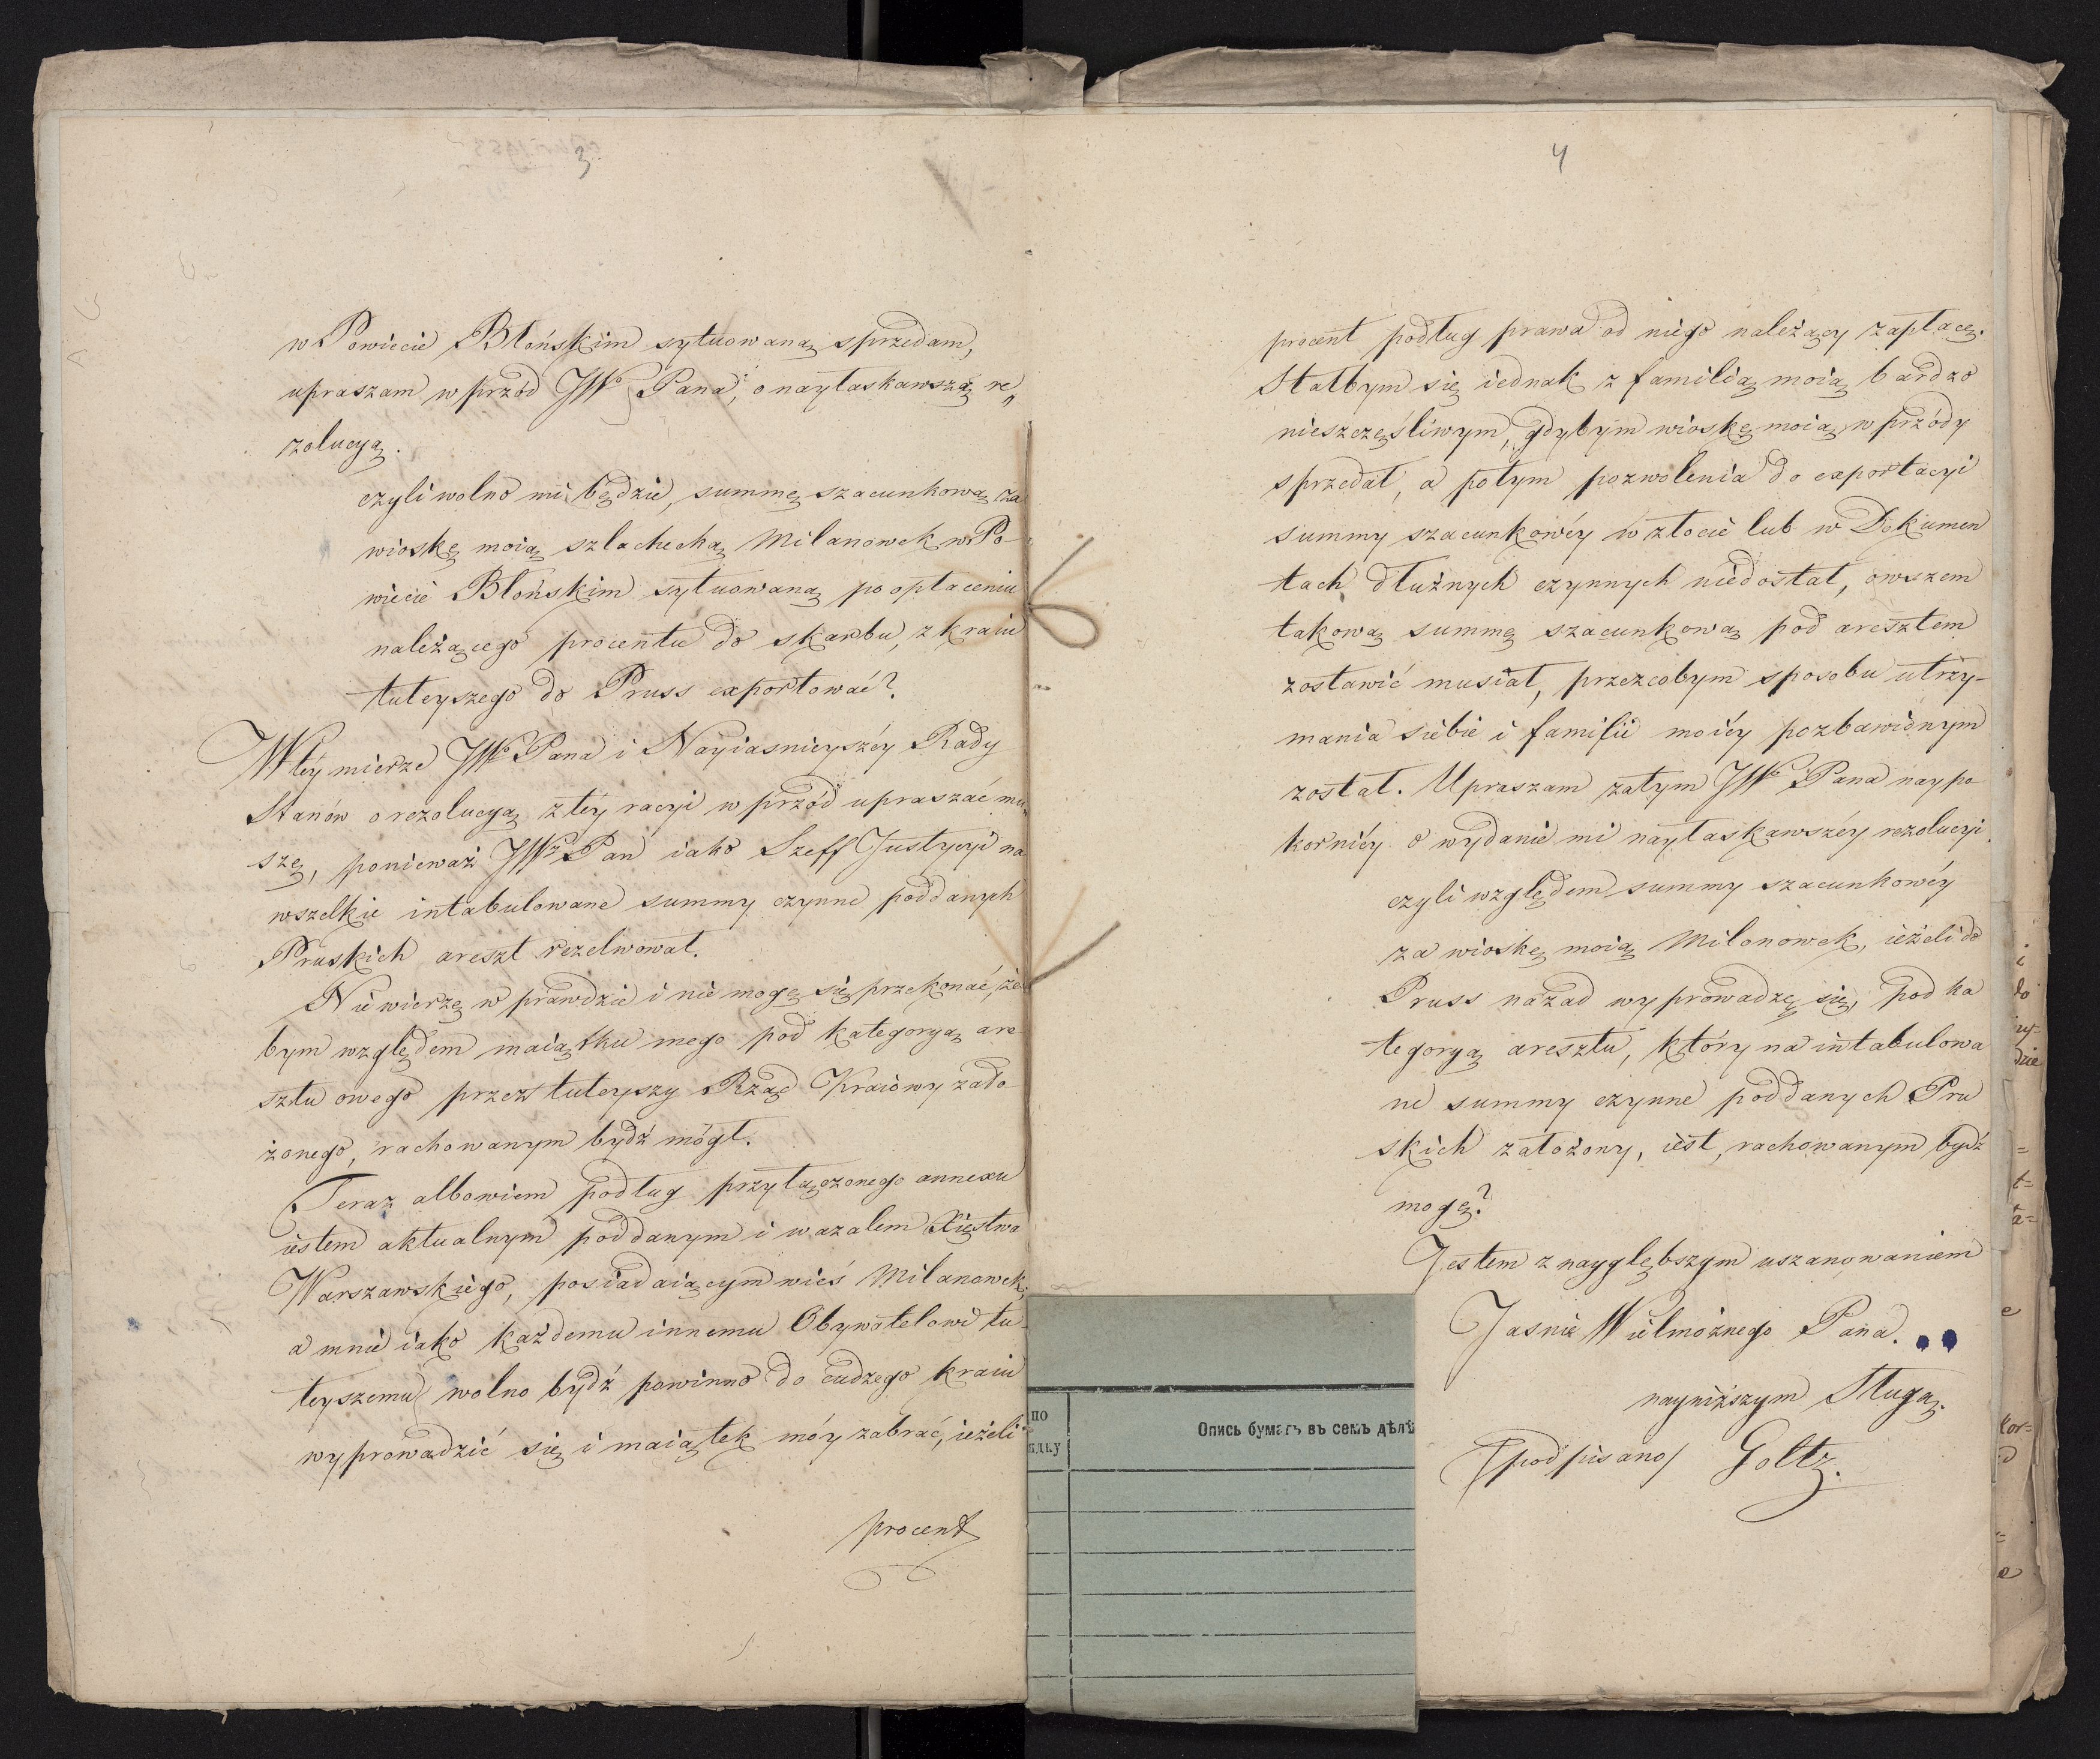 3
w Powiecie Błońskim sytuowaną sprzedam,
upraszam wprzód JW⁰ Pana, o nayłaskawszą re„
zolucyą.
czyli wolno mi będzie, summę szacunkową za
wioskę moią szlachecką Milanowek w Po-
wiecie Błońskim sytuowaną po opłaceniu
należącego procentu do skarbu, z kraiu
tuteyszego do Pruss exportować?
W téy mierze JW⁰ Pana i Nayiasnieyszéy Rady
Stanów o rezolucyą z téy racyi wprzód upraszać mu„
szę, ponieważ JWy Pan iako Szeff Justycyi na
wszelkie intabulowane summy czynne poddanych
Pruskich areszt rezelwował.
Nie wierzę w prawdzie i nie mogę się przekonać, że
bym względem maiątku mego pod kategoryą are
sztu owego przez tuteyszy Rząd Kraiowy zało
żonego, rachowanym bydź mógł.
Teraz albowiem podług przyłączonego annexu
iestem aktualnym poddanym i wazalem Xięstwa
Warszawskiego, posiadaiącym wieś Milanowek,
a mnie iako każdemu innemu Obywatelowi tu-
teyszemu wolno bydź powinno do cudzego kraiu
wyprowadzić się i maiątek móy zabrać, ieżeli
procent
4
procent podług prawa od niego należący zapłacę.
Stałbym się iednak z familią moią bardzo
nieszczęśliwym, gdybym wioskę moią wprzódy
sprzedał, a potym pozwolenia do exportacyi
summy szacunkowéy w złocie lub w Dokumen
tach dłużnych czynnych niedostał, owszem
takową summę szacunkową pod aresztem
zostawić musiał, przezcobym sposobu utrzy-
mania siebie i familii moiéy pozbawionym
został. Upraszam zatym JW⁰ Pana naypo
korniéy o wydanie mi nayłaskawszéy rezolucyi
czyli względem summy szacunkowéy
za wioskę moią Milonowek, ieżeli do
Pruss nazad wyprowadzę się, pod ka
tegoryą aresztu, który na intabulowa
ne summy czynne poddanych Pru
skich założony, iest, rachowanym bydź
mogę?
Jestem z naygłębszym uszanowaniem
Jasnie Wielmożnego Pana.
nayniższym Sługą.
/podpisano/ Goltz.
по
ядку
Опись бумагъ въ семъ дѣлѣ